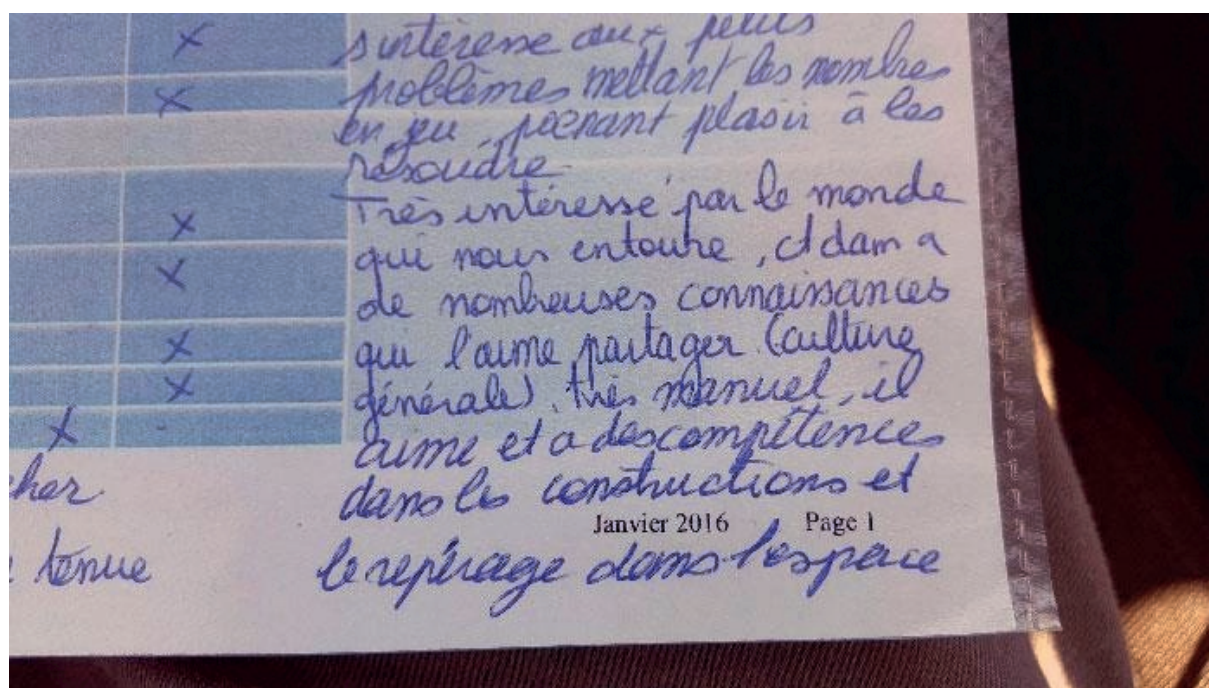 s'intéresse aux petits
problèmes mettant les nombres
en jeu, prenant plaisir à les
résoudre.
Très intéressé par le monde
qui nous entoure, Adam a
de nombreuses connaissances
qui l'aime partager (culture
générale). très manuel, il
aime et a des compétences
dans les constructions et
cher
Janvier 2016 Page 1
tenue le repérage dans l'espace